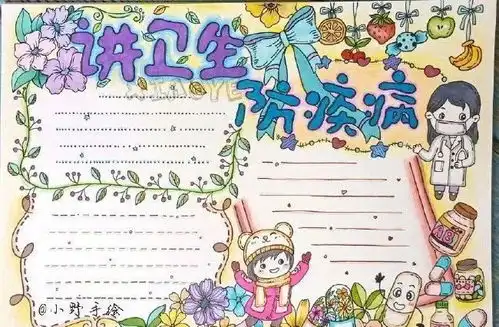 讲卫生
防疾病
@小野手绘